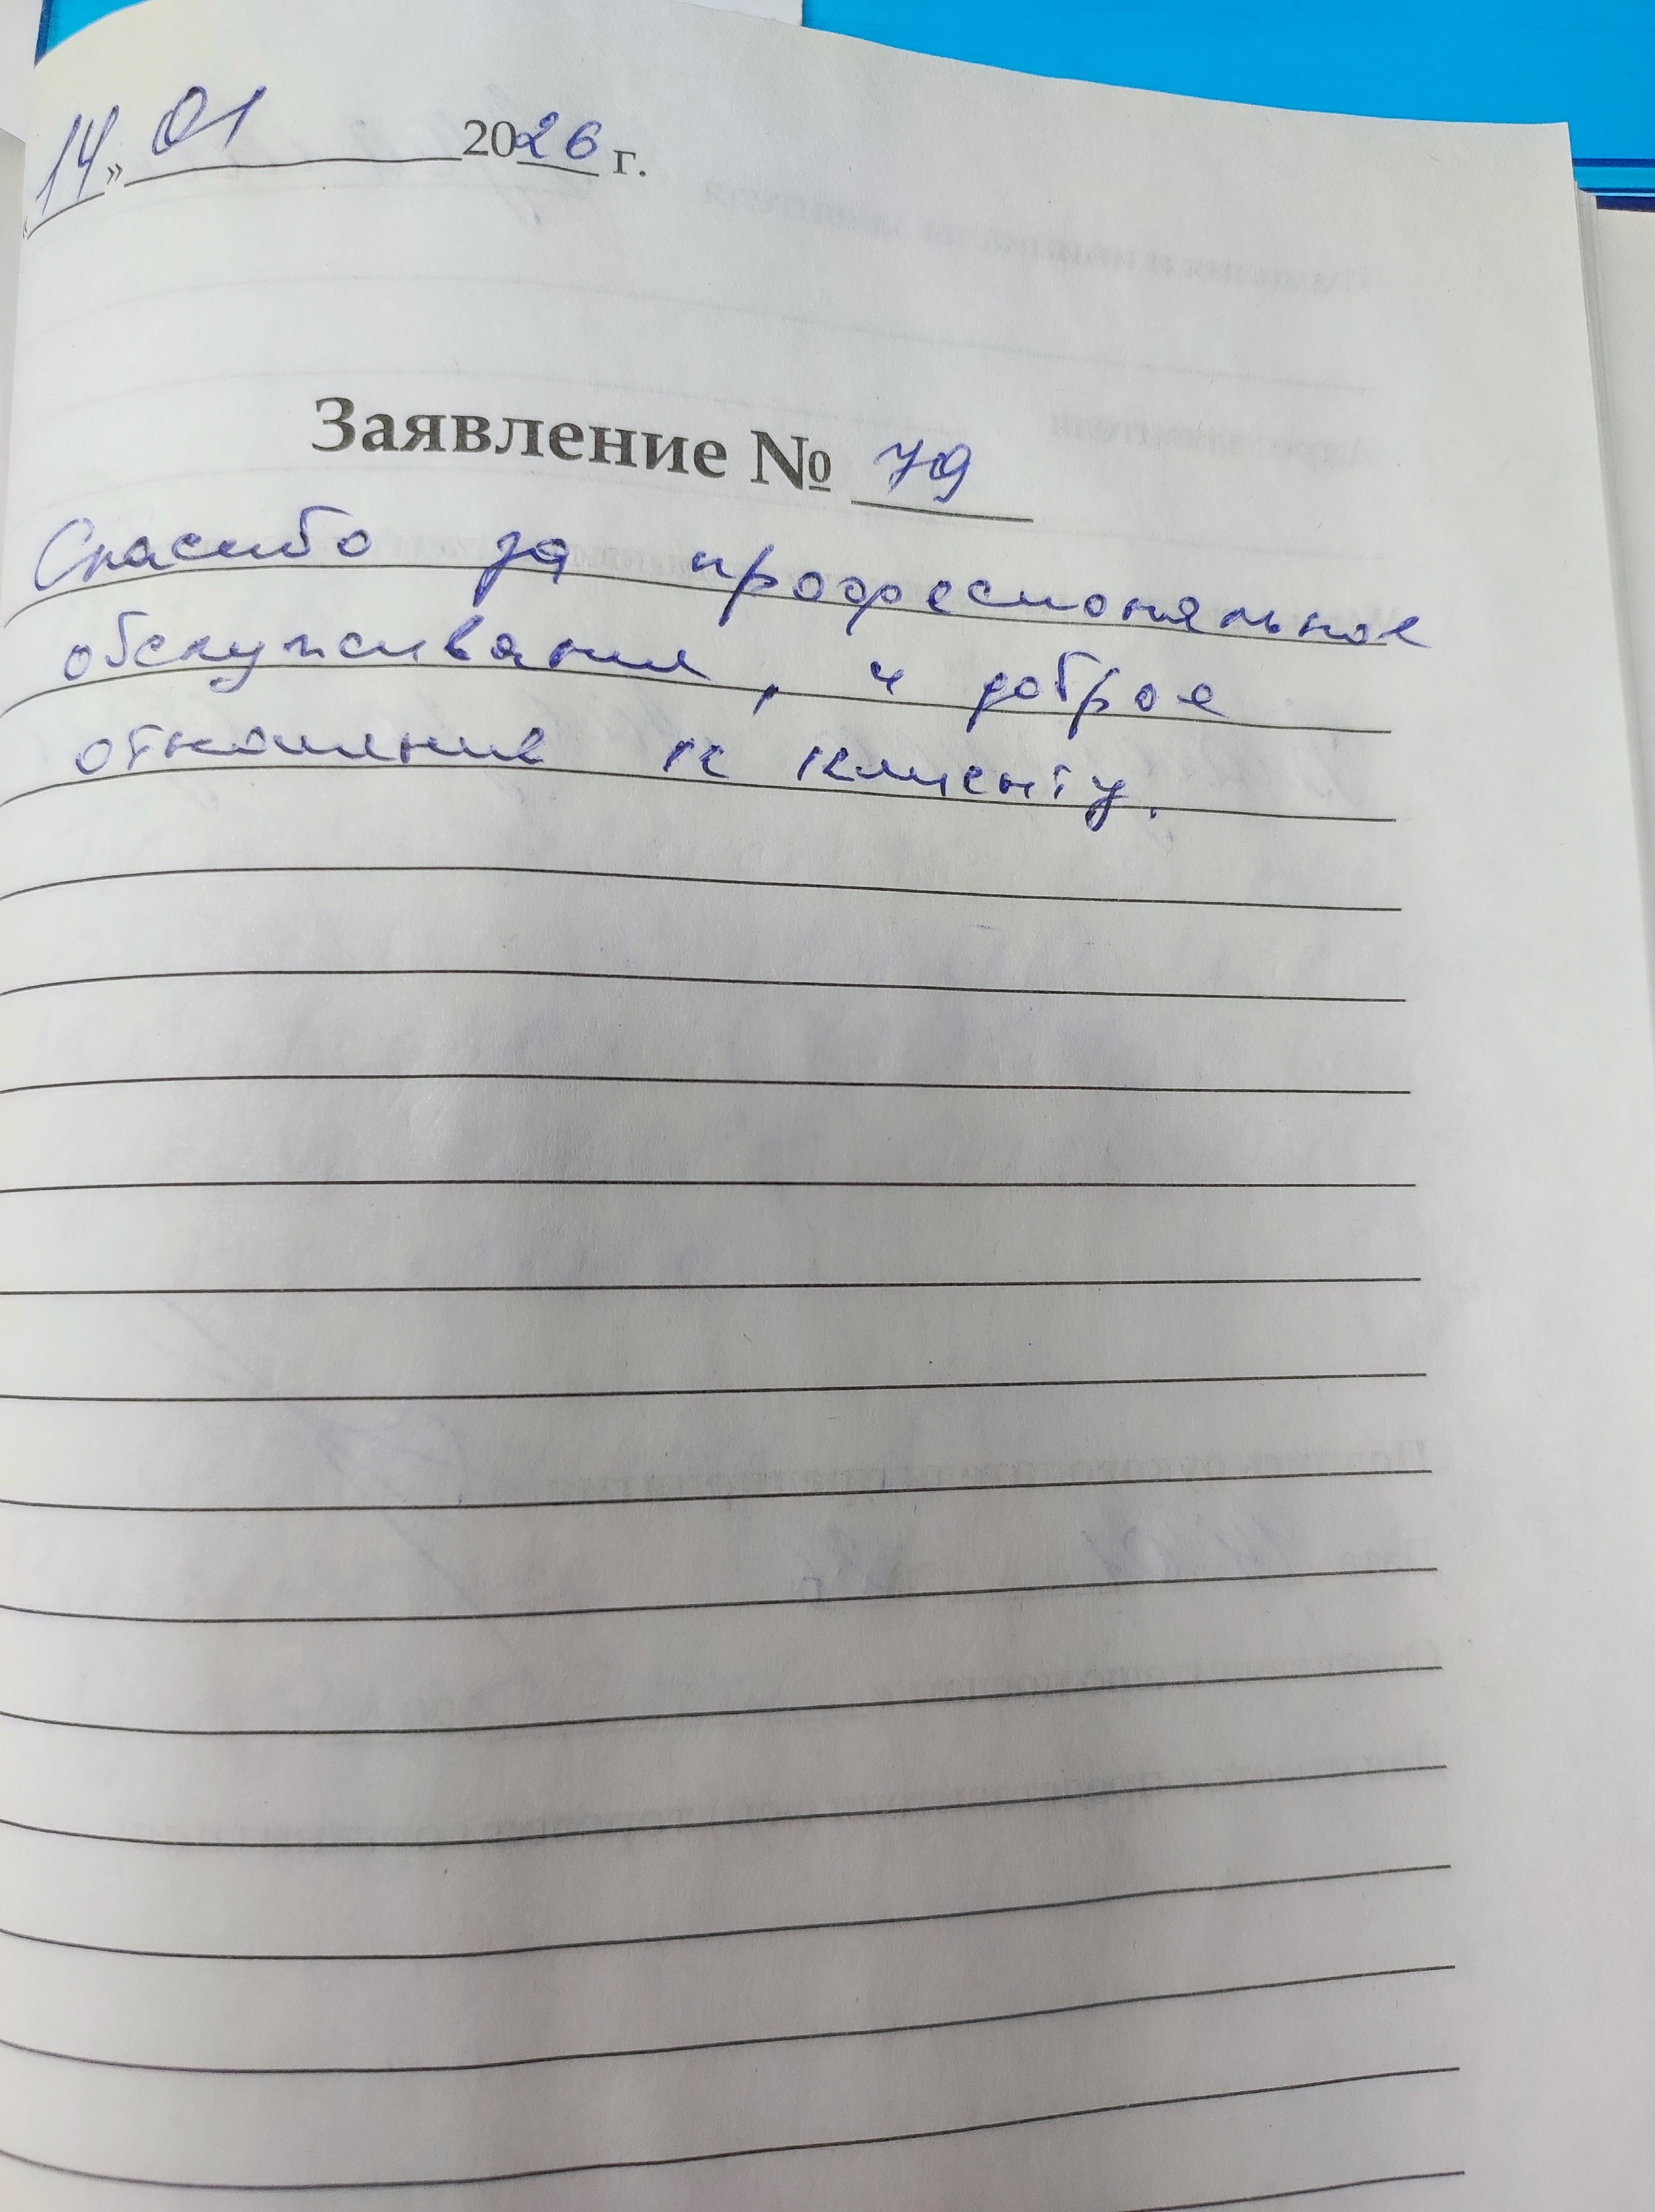 «14» 01 2026 г.
Заявление № 79
Спасибо за професиональное
обслуживания, и доброе
отношение к клиенту.